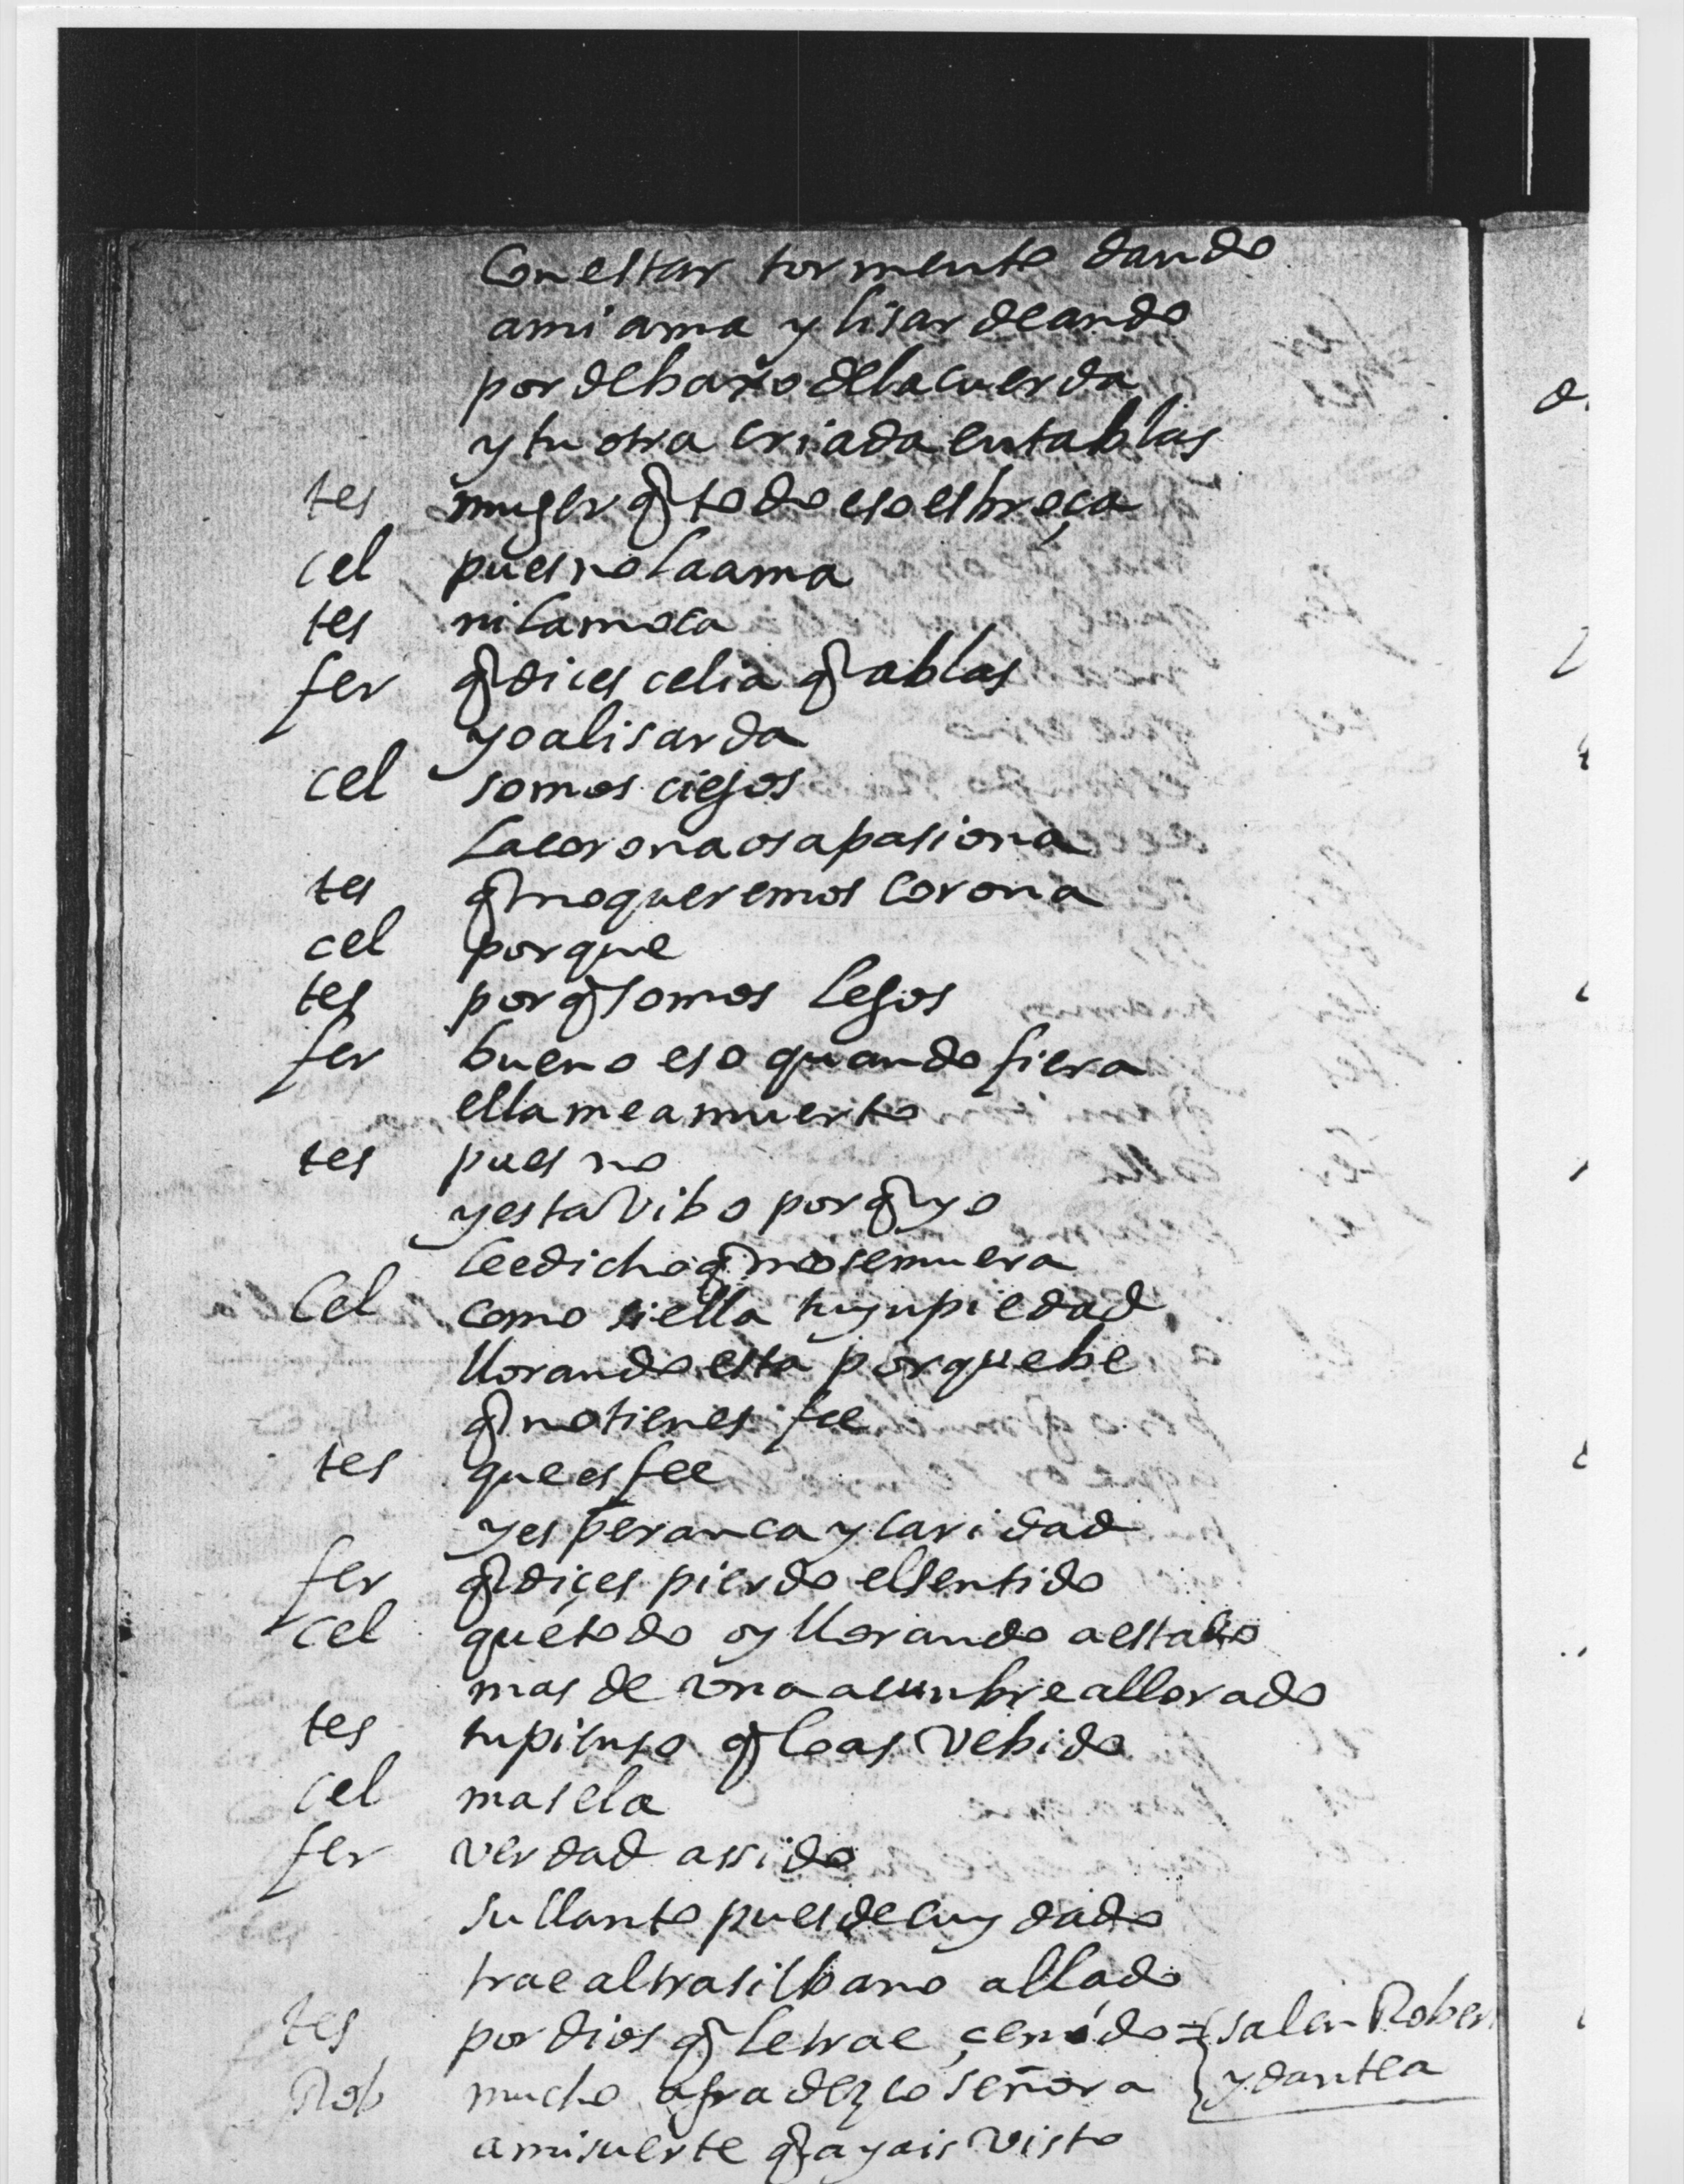 Con estar tormento dando
a mi ama y lisardeando
por debaxo de la cuerda
y tu otra criada entablas
tes muger q todo eso es broça
cel pues no la ama
tes ni la moca
fer q dices celia q ablas
yo a lisarda
cel somos ciegos
la corona os apasiona
tes q no queremos corona
cel porque
tes porq somos legos
fer bueno eso quando fiera
ella me a muerto
tes pues no
y esta vibo porq yo
le e dicho q no se muera
Cel como si ella tuyupiedad
llorando esta porque be
q no tienes fee
tes que es fee
y esperanca y caridad
fer q diçes pierdo el sentido
cel que todo oy llorando a estado
mas de una acunbre a llorado
tes tu pienso q lo as vebido
cel mas ela
fer verdad assido
su llanto pues de cuydado
trae al trasilbano al lado
tes por dios q le trae çenido = salen Rober
y dantea
Rob mucho agradezco señora
a mi suerte q ayais visto